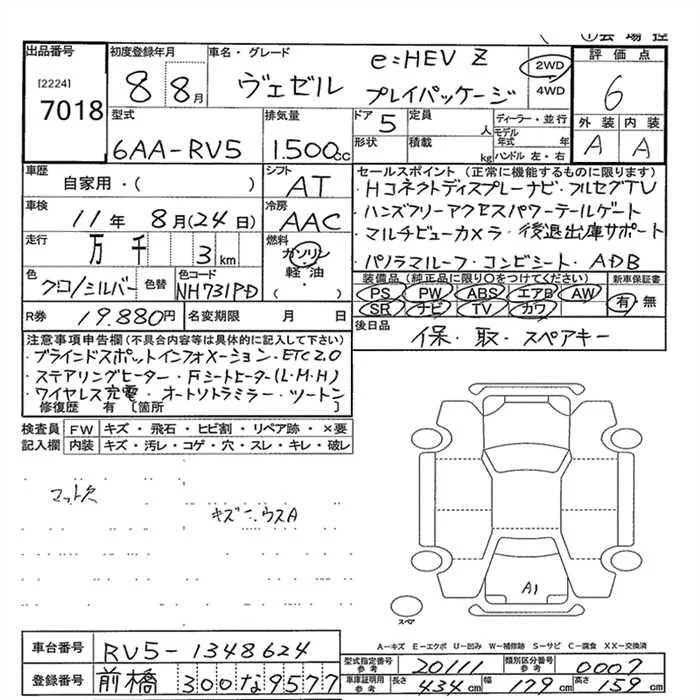 ①会場控
出品番号
[2224]
7018
初度登録年月
8 8月
車名・グレード
ヴェゼル e:HEV Z
プレイパッケージ
2WD
4WD
評価点
6
外装 内装
A A
型式
6AA-RV5
排気量
1.500cc
ドア 5
形状
定員 人
積載 kg
ディーラー・並行
モデル年式 年
ハンドル 左・右
車歴
自家用・( )
シフト
AT
セールスポイント (正常に機能するものに限ります)
・Hコネクトディスプレーナビ・フルセグTV
・ハンズフリーアクセスパワーテールゲート
・マルチビューカメラ・後退出庫サポート
・パノラマルーフ・コンビシート・ADB
車検
11年 8月(24日)
冷房
AAC
走行
万 千 3km
燃料
ガソリン・
軽油・
( )
色
クロ/シルバー
色替
色コード
NH731P-D
装備品 (純正品に限り○をつけてください)
PS PW ABS エアB AW
SR ナビ TV カワ
新車保証書
有・無
R券 19.880円
名変期限 月 日
後日品
保・取・スペアキー
注意事項申告欄(不具合内容等は具体的に記入して下さい)
・ブラインドスポットインフォメーション・ETC2.0
・ステアリングヒーター・Fシートヒーター(L・M・H)
・ワイヤレス充電・オートリトラミラー・ツートン
修復歴 有 〔箇所
検査員
記入欄
FW キズ・飛石・ヒビ割・リペア跡・×要
内装 キズ・汚レ・コゲ・穴・スレ・キレ・破レ
マット欠
キズ・ウスA
A1
スペア
A-キズ E-エクボ U-凹み W-補修跡 S-サビ C-腐食 XX-交換済
車台番号 RV5-1348624
登録番号 前橋 300な9577
型式指定番号 参考 20111
類別区分番号 参考 0007
車庫証明用 参考 長さ 434cm 幅 179cm 高さ 159cm